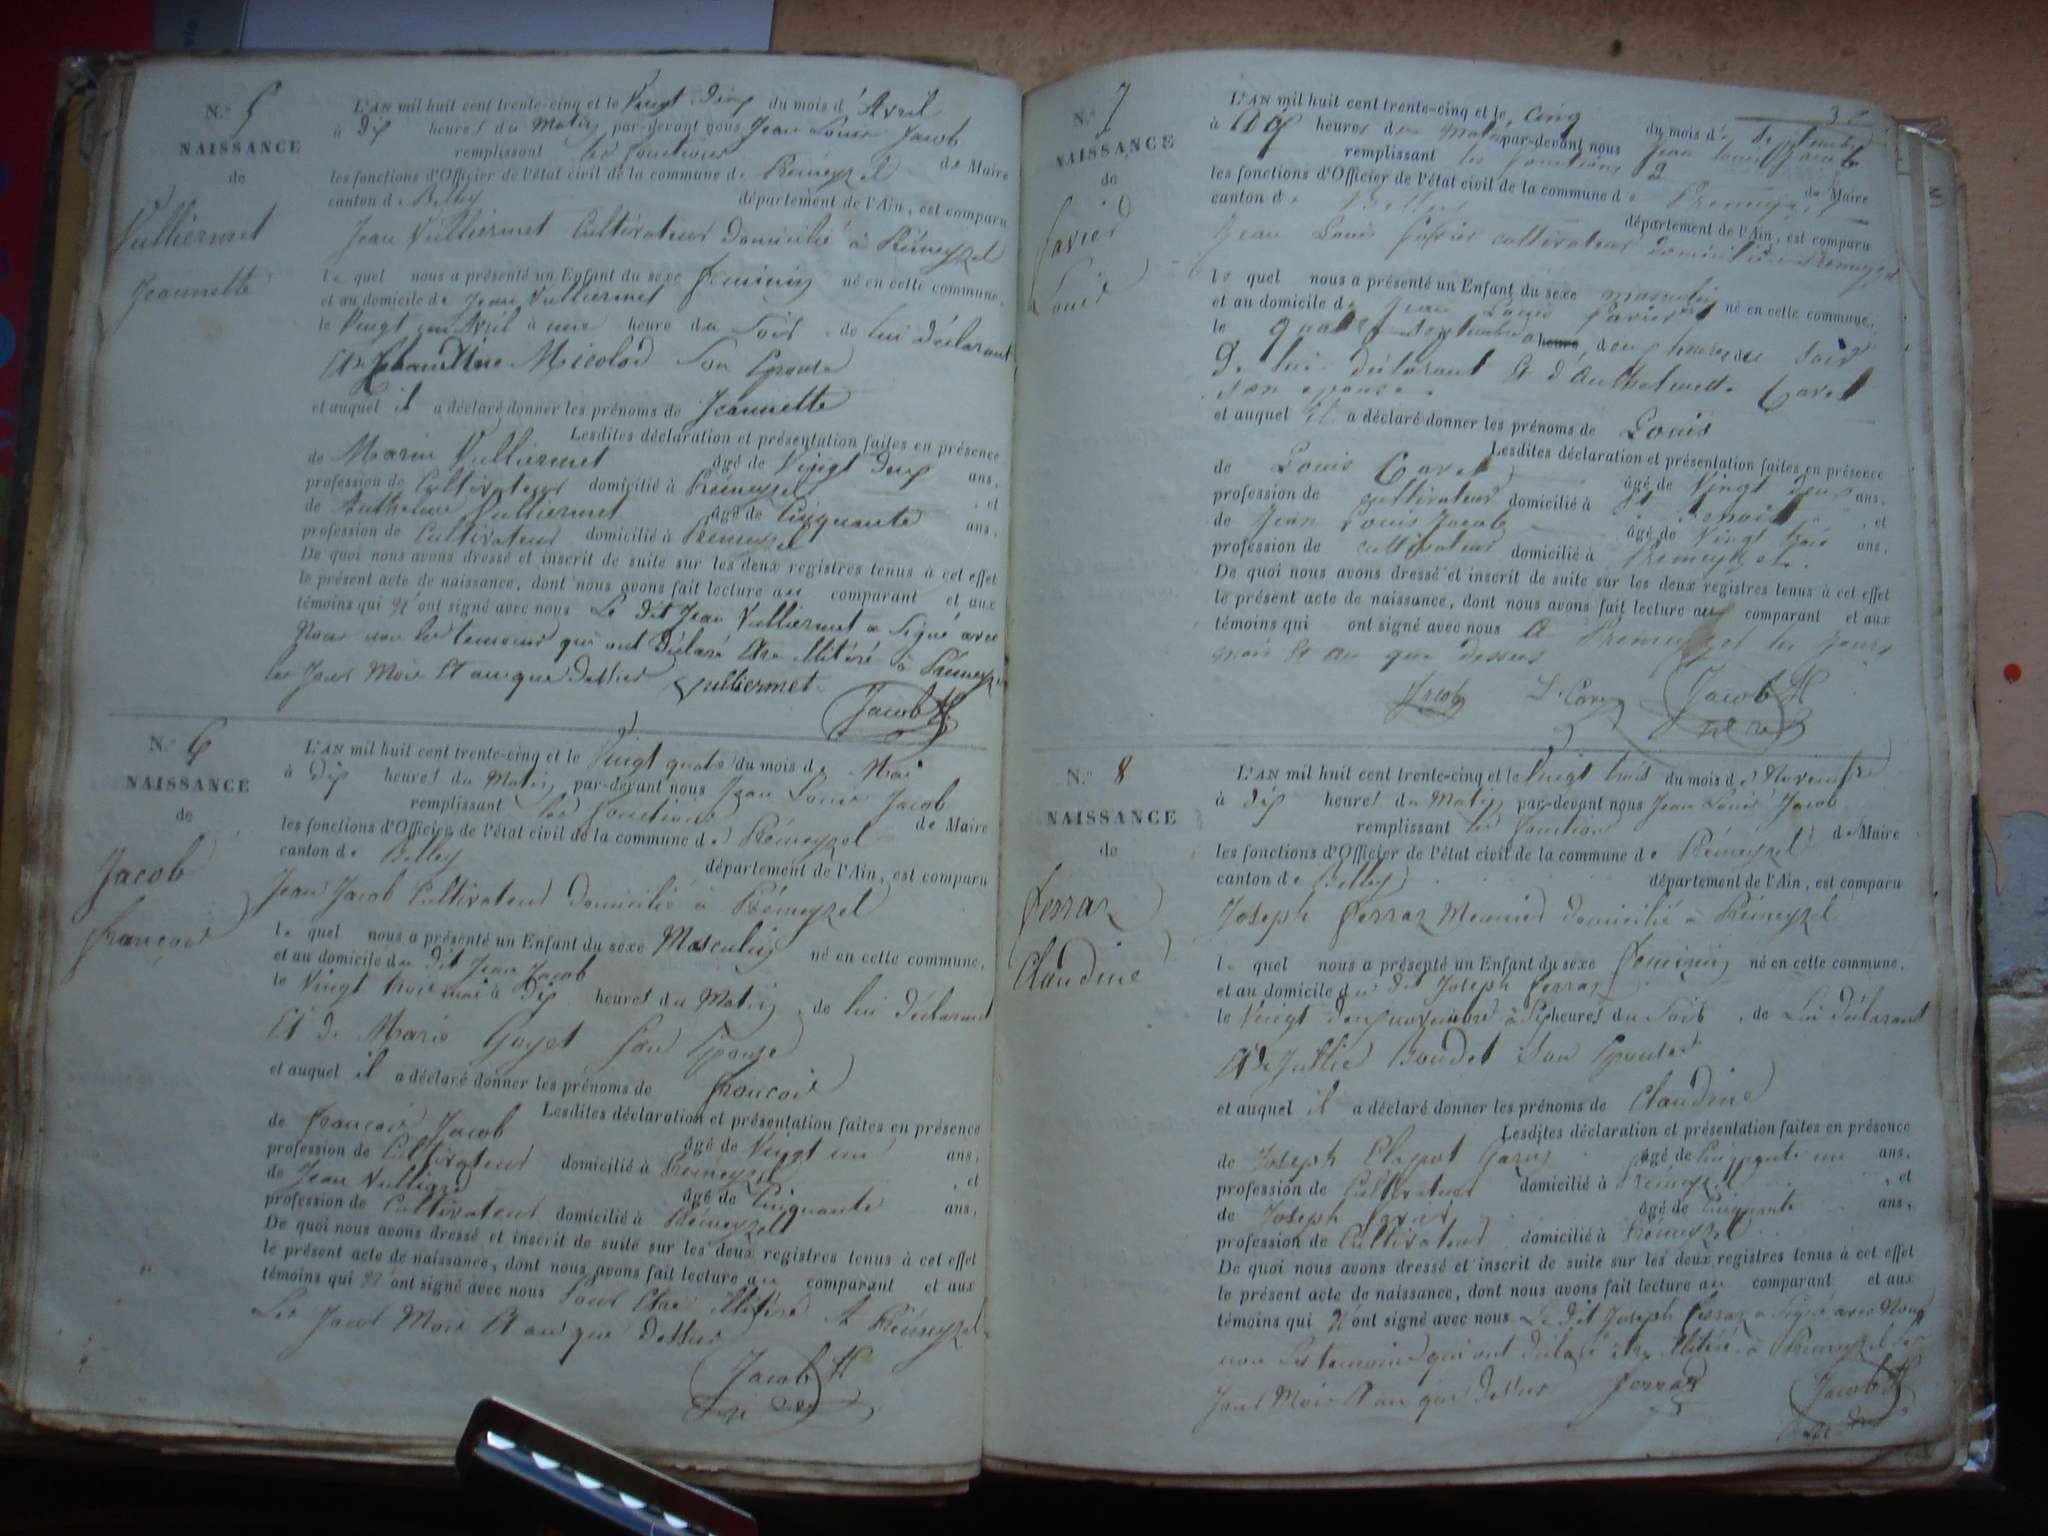 N.° 5
NAISSANCE
de
Vulliermet
Jeannette
L'AN mil huit cent trente-cinq et le Vingt deux du mois d'Avril
à dix heures du Matin par-devant nous Jean Louis Jacob
remplissant les fonctions de Maire
les fonctions d'Officier de l'état civil de la commune de Prémeyzel
canton de Belley département de l'Ain, est comparu
Jean Vulliermet Cultivateur domicilié à Prémeyzel
le quel nous a présenté un Enfant du sexe féminin né en cette commune,
et au domicile de Jean Vulliermet
le Vingt un Avril à une heure du Soir, de lui déclarant
Et de Micolod Son Epouse
et auquel il a déclaré donner les prénoms de Jeannette
Lesdites déclaration et présentation faites en présence
de Marin Vulliermet âgé de Vingt deux ans,
profession de Cultivateur domicilié à Prémeyzel, et
de Anthelme Vulliermet âgé de Cinquante ans,
profession de Cultivateur domicilié à Prémeyzel
De quoi nous avons dressé et inscrit de suite sur les deux registres tenus à cet effet
le présent acte de naissance, dont nous avons fait lecture au comparant et aux
témoins qui n'ont signé avec nous Le dit Jean Vulliermet a Signé avec
Nous non les temoins qui ont Déclaré Etre illitéré à Prémeyzel
les Jour Mois Et an que dessus Vulliermet
Jacob
N.° 6
NAISSANCE
de
Jacob
francois
L'AN mil huit cent trente-cinq et le Vingt quatre du mois de Mai
à dix heures du Matin par-devant nous Jean Louis Jacob
remplissant les fonctions de Maire
les fonctions d'Officier de l'état civil de la commune de Prémeyzel
canton de Belley département de l'Ain, est comparu
Jean Jacob Cultivateur domicilié à Prémeyzel
le quel nous a présenté un Enfant du sexe Masculin né en cette commune,
et au domicile du dit Jean Jacob
le Vingt trois mai à dix heures du Matin, de lui déclarant
Et de Marie Goyet Son Epouse
et auquel il a déclaré donner les prénoms de francois
Lesdites déclaration et présentation faites en présence
de francois Jacob âgé de Vingt un ans,
profession de Cultivateur domicilié à Prémeyzel, et
de Jean âgé de Cinquante ans,
profession de Cultivateur domicilié à Prémeyzel
De quoi nous avons dressé et inscrit de suite sur les deux registres tenus à cet effet
le présent acte de naissance, dont nous avons fait lecture au comparant et aux
témoins qui n'ont signé avec nous Pour Etre illitéré A Prémeyzel
Les Jour Mois Et an que dessus
Jacob
N.° 7
NAISSANCE
de
favier
Louis
L'AN mil huit cent trente-cinq et le cinq du mois de Septembre
à dix heures du Matin par-devant nous Jean Louis Jacob
remplissant les fonctions de Maire
les fonctions d'Officier de l'état civil de la commune de Premeyzel
canton de Belley département de l'Ain, est comparu
Jean Louis favier cultivateur domicilié a Premeyzel
le quel nous a présenté un Enfant du sexe masculin né en cette commune,
et au domicile de Jean Louis favier
le quatre Septembre a deux heures du Soir
De lui déclarant Et d'Anthelmette Caret
son epouse
et auquel il a déclaré donner les prénoms de Louis
Lesdites déclaration et présentation faites en présence
de Louis Caret âgé de Vingt deux ans,
profession de cultivateur domicilié à St Benoit, et
de Jean Louis Jacob âgé de Vingt trois ans,
profession de cultivateur domicilié à Premeyzel.
De quoi nous avons dressé et inscrit de suite sur les deux registres tenus à cet effet
le présent acte de naissance, dont nous avons fait lecture au comparant et aux
témoins qui ont signé avec nous A Premeyzel les jours
mois et an que dessus
Jacob Jacob
N.° 8
NAISSANCE
de
ferraz
Claudine
L'AN mil huit cent trente-cinq et le Vingt trois du mois de Novembre
à dix heures du Matin par-devant nous Jean Louis Jacob
remplissant les fonctions de Maire
les fonctions d'Officier de l'état civil de la commune de Prémeyzel
canton de Belley département de l'Ain, est comparu
Joseph ferraz Meunier domicilié à Prémeyzel
le quel nous a présenté un Enfant du sexe féminin né en cette commune,
et au domicile du dit Joseph ferraz
le Vingt deux novembre à Six heures du Soir, de Lui déclarant
Et de Jullie Boudet Son Epouse
et auquel il a déclaré donner les prénoms de Claudine
Lesdites déclaration et présentation faites en présence
de Joseph âgé de Cinquante un ans,
profession de Cultivateur domicilié à Prémeyzel, et
de Joseph favier âgé de Cinquante ans,
profession de Cultivateur domicilié à Prémeyzel
De quoi nous avons dressé et inscrit de suite sur les deux registres tenus à cet effet
le présent acte de naissance, dont nous avons fait lecture au comparant et aux
témoins qui n'ont signé avec nous Le dit Joseph ferraz a Signé avec Nous
non Les temoins qui ont déclaré être illitéré à Prémeyzel les
Jour Mois Et an que dessus ferraz Jacob